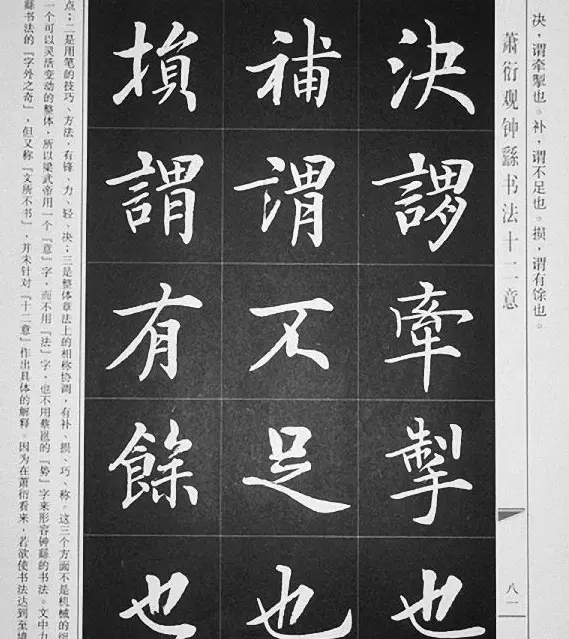 决，谓牵掣也。补，谓不足也。损，谓有馀也。
萧衍观钟繇书法十二意
八一
決謂牽掣也
補謂不足也
損謂有餘也
点；二是用笔的技巧、方法，有锋、力、轻、决；三是整体章法上的相称协调，有补、损、巧、称。这三个方面不是机械的组
一个可以灵活变动的整体，所以梁武帝用一个『意』字，而不用『法』字，也不用蔡邕的『势』字来形容钟繇的书法。文中
繇书法的『字外之奇』，但又称『文所不书』，并未针对『十二意』作出具体的解释。因为在萧衍看来，若欲使书法达到至境